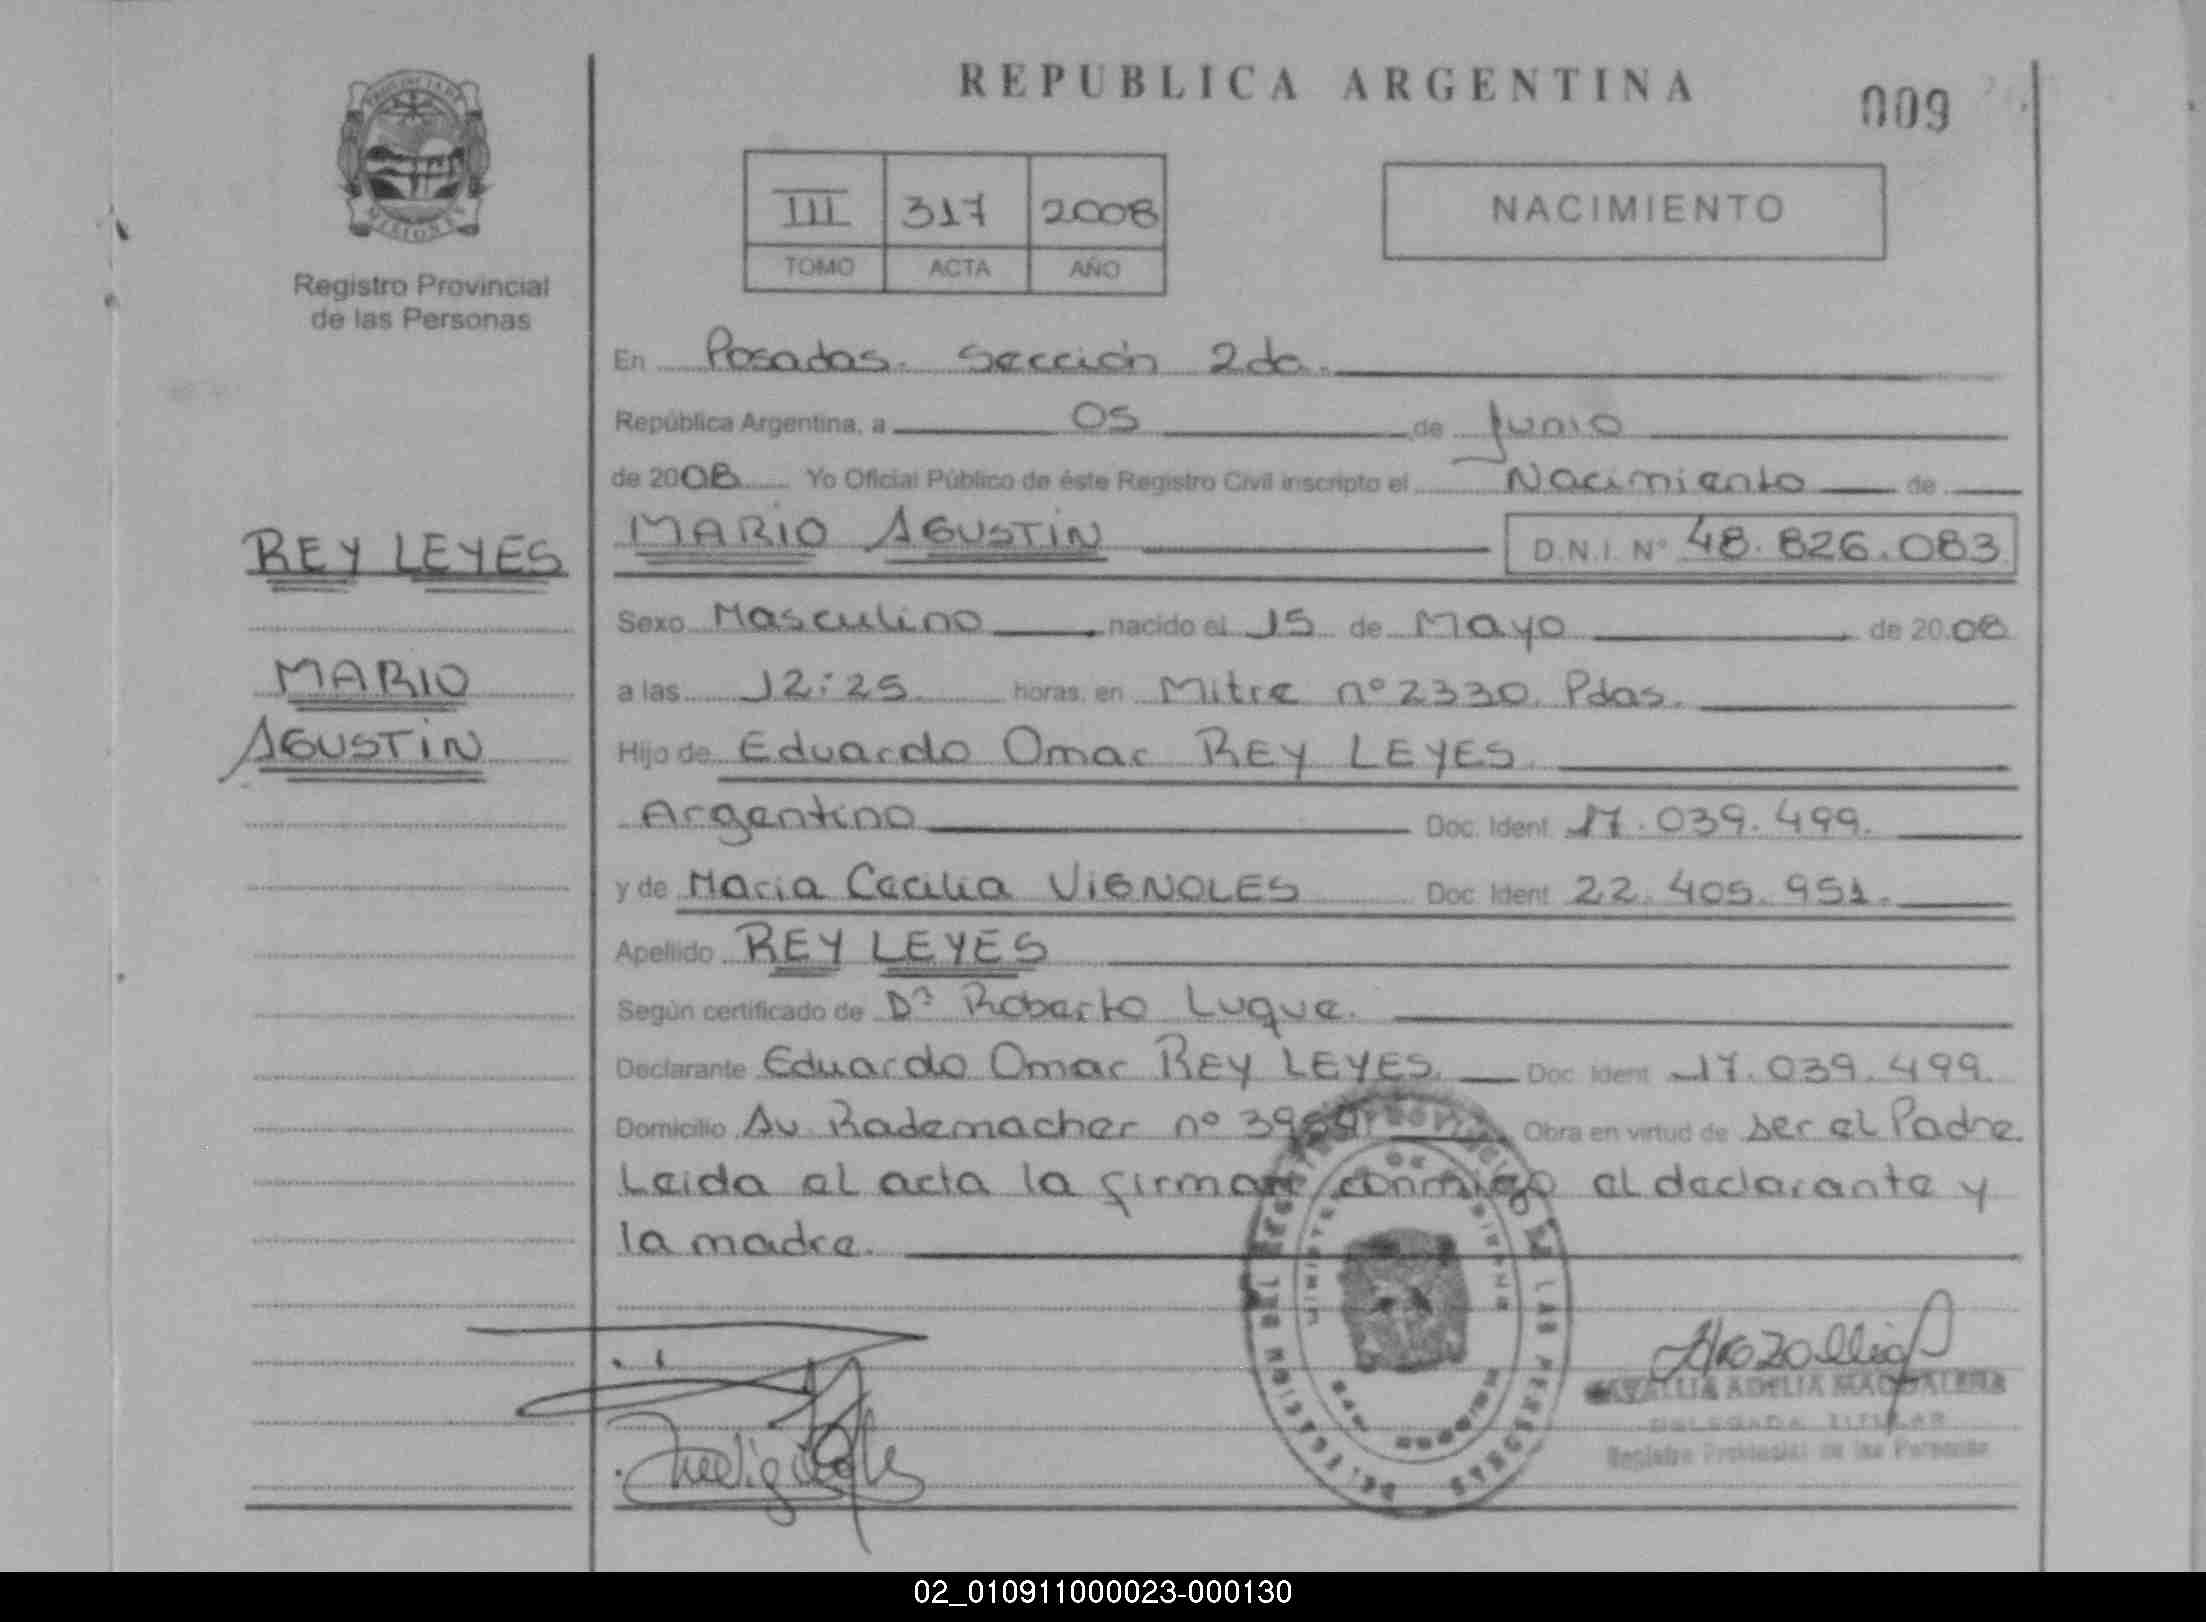 REPUBLICA ARGENTINA
009
PROVINCIA DE
MISIONES
Registro Provincial
de las Personas
III 317 2008
TOMO ACTA AÑO
NACIMIENTO
En Posadas. Sección 2da.
República Argentina, a 05 de Junio
de 2008 Yo Oficial Público de éste Registro Civil inscripto el Nacimiento de
REY LEYES
MARIO AGUSTIN D.N.I. Nº 48.826.083
Sexo Masculino nacido el 15 de Mayo de 2008
MARIO
a las 12:25 horas, en Mitre nº 2330. Pdas.
AGUSTIN
Hijo de Eduardo Omar REY LEYES
Argentino Doc. Ident. 17.039.499.
y de Maria Cecilia VIGNOLES Doc. Ident. 22.405.951.
Apellido REY LEYES
Según certificado de Dr Roberto Luque.
Declarante Eduardo Omar REY LEYES. Doc. Ident. 17.039.499.
Domicilio Av. Rademacher nº Obra en virtud de ser el Padre.
Leida el acta la firman conmigo el declarante y
la madre.
ADELIA MAGDALENA
DELEGADA TITULAR
Registro Provincial de las Personas
02_010911000023-000130